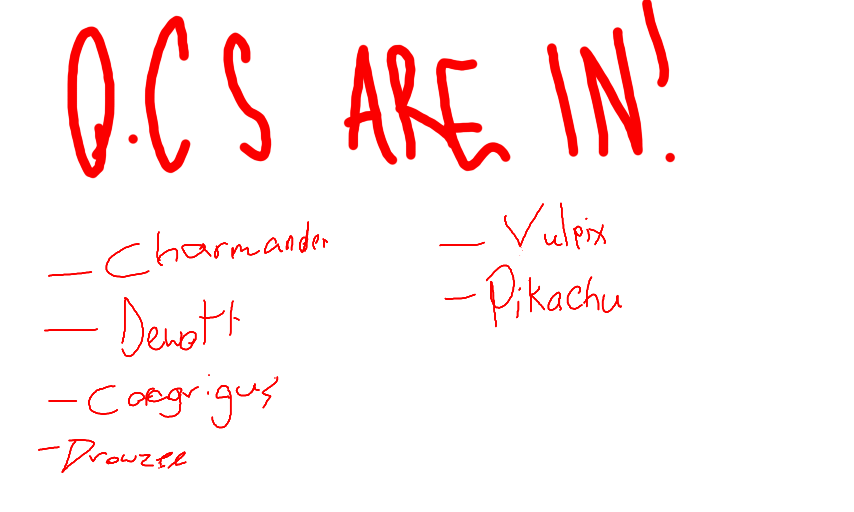 Q.CS ARE IN!
— Charmander
— Dewott
— Coegrigus
— Drowzee
— Vulpix
— Pikachu